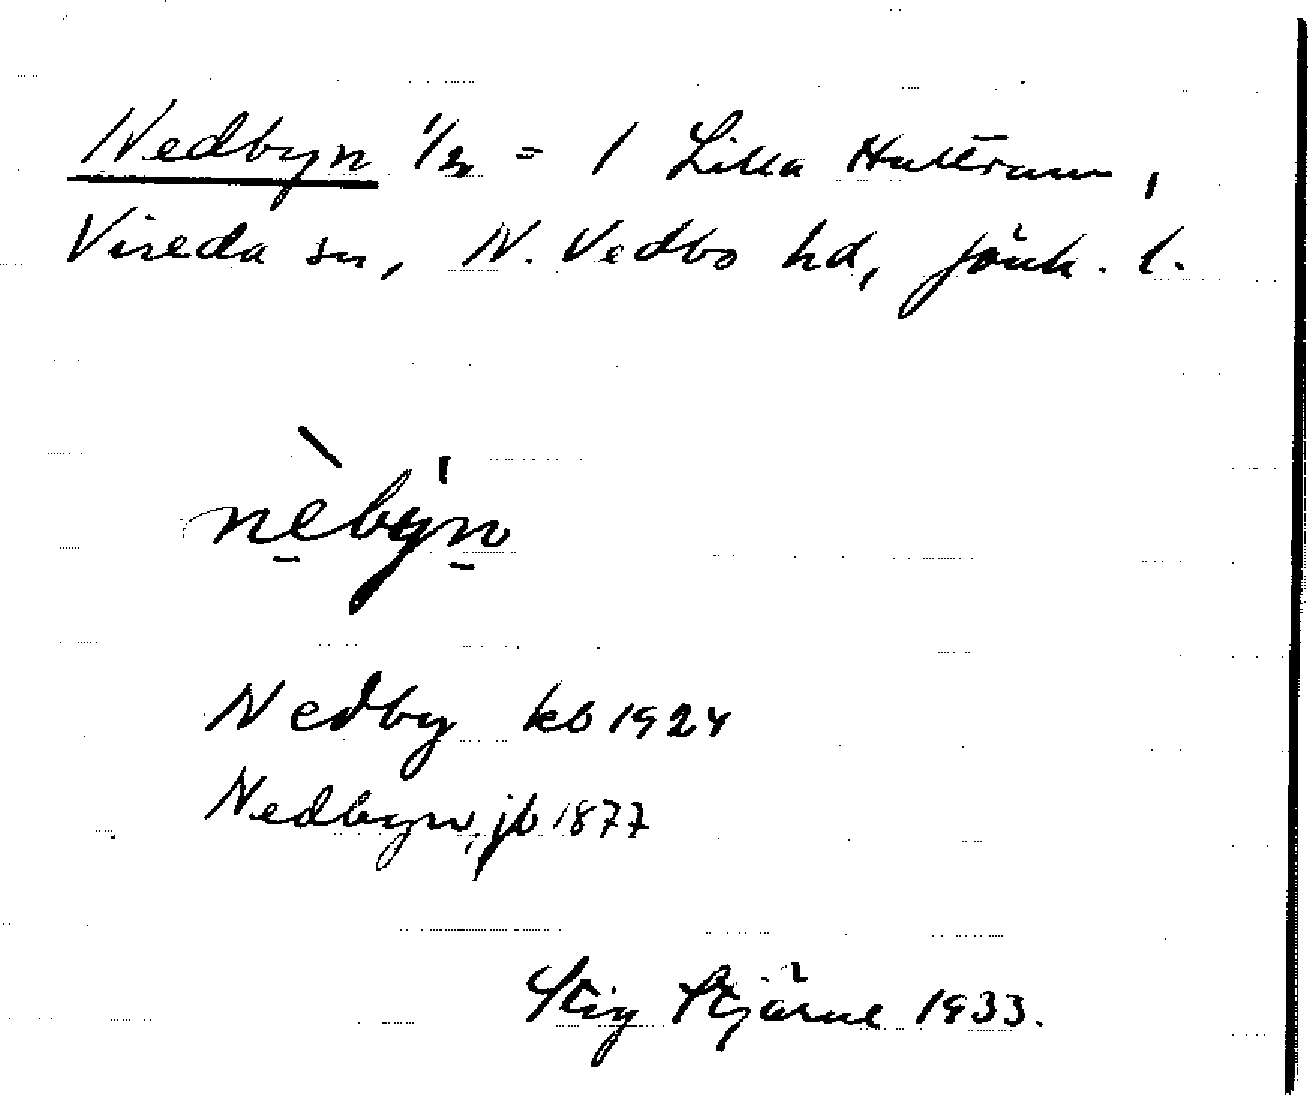 Nedbyn 1/2 = 1 Lilla Hultrum,
Vireda sn, N. Vedbo hd, Jönk. l.
nèby̍n
Nedby kb 1924
Nedbyn, jb 1877
Stig Stjärne 1933.